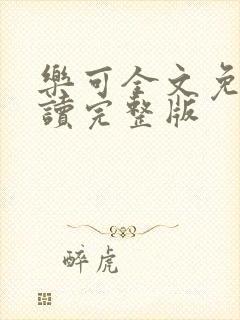 樂可全文免
讀完整版
醉虎